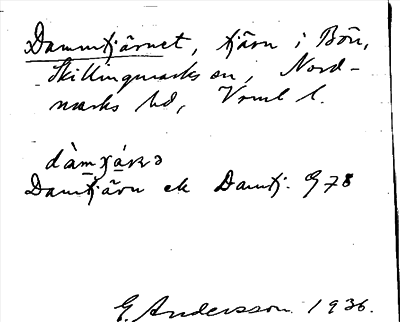 Dammtjärnet, tjärn i Bön,
Skillingmarks sn, Nord-
marks hd, Vrml l.
Damtjärn ek Damtj. G78
E. Andersson 1936.